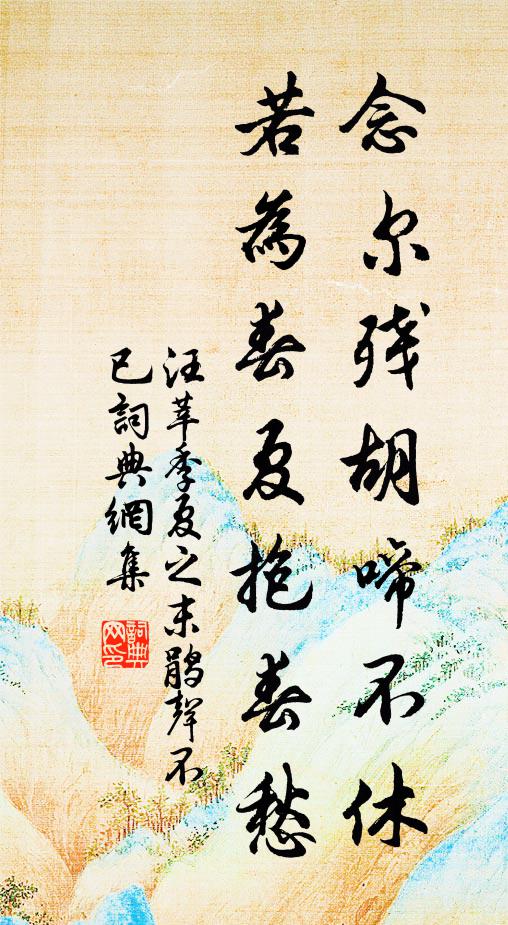 念尔残胡啼不休
若為春夏抱春愁
汪莘季夏之末鹃聲不
已詞典網集
詞典網印